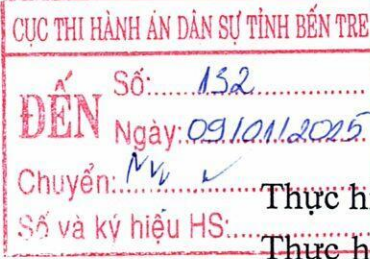 CỤC THI HÀNH ÁN DÂN SỰ TỈNH BẾN TRE
ĐẾN
Số:.......132..........
Ngày:09/01/2025
Chuyển:.............
Thực h
Số và ký hiệu HS:..........
Thực h